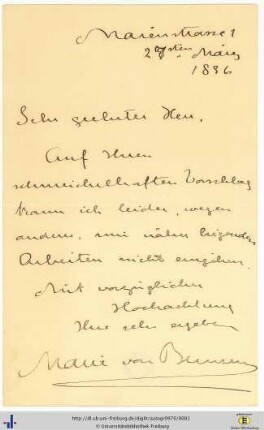 Marienstrasse 1
27sten März
1896
Sehr geehrter Herr,
Auf Ihren
schmeichelhaften Vorschlag
kann ich leider, wegen
andern, mir näher liegenden
Arbeiten nicht eingehen.
Mit vorzüglicher
Hochachtung
Ihre sehr ergeben
Marie von Bunsen
http://dl.ub.uni-freiburg.de/diglit/autogr0970/0001
© Universitätsbibliothek Freiburg